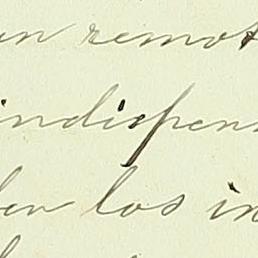 en remot
indispen
los in